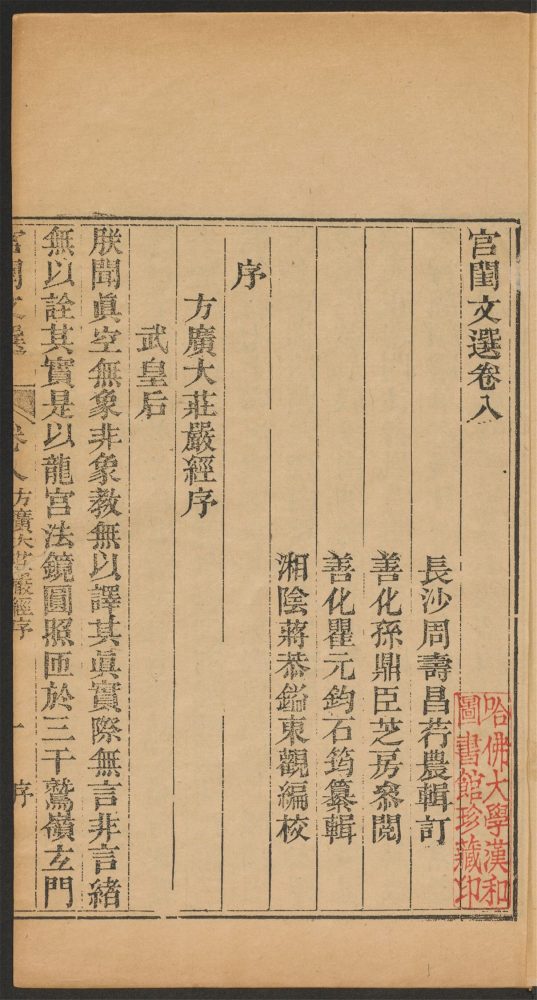 宮閨文選卷八
長沙周壽昌荇農輯訂
善化孫鼎臣芝房參閱
善化瞿元鈞石筠纂輯
湘陰蔣恭鎰東觀編校
序
方廣大莊嚴經序
武皇后
朕聞眞空無象非象教無以譯其眞實際無言非言緒
無以詮其實是以龍宮法鏡圓照匝於三千鷲嶺玄門
宮閨文選 卷八 方廣大莊嚴經序 一 序
哈佛大學漢和
圖書館珍藏印